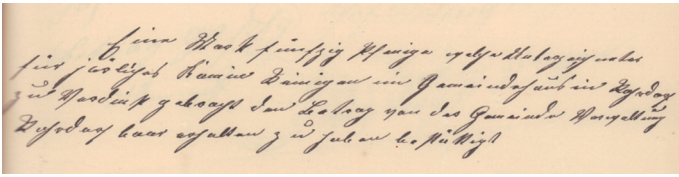 Eine Mark fünfzig Pfenige welche Unterzeichneter
für järliches Kamin Reinigen im Gemeindehaus in Rohrdorf
zu Verdinst gebracht den Betrag von der Gemeinde Verwaltung
Rohrdorf baar erhalten zu haben bestättigt